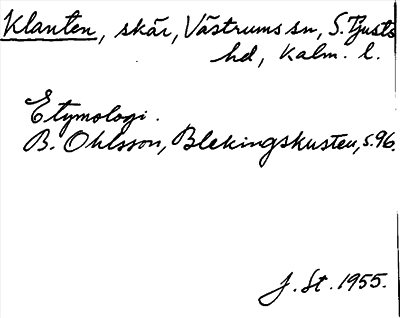 Klanten, skär, Västrums sn, S. Tjusts
hd, Kalm. l.
Etymologi.
B. Ohlsson, Blekingskusten, s. 96.
J. St. 1955.